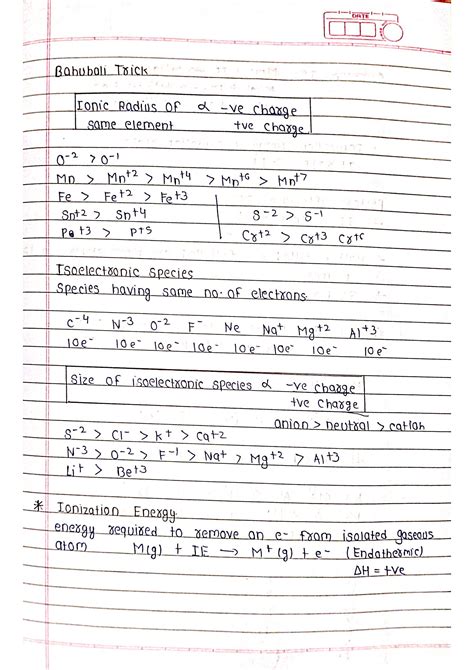 DATE
Bahubali Trick
Ionic Radius of α -ve charge
same element +ve charge
O-2 > O-1
Mn > Mn+2 > Mn+4 > Mn+6 > Mn+7
Fe > Fe+2 > Fe+3
Sn+2 > Sn+4 S-2 > S-1
P+3 > P+5 Cr+2 > Cr+3 Cr+6
Isoelectronic species
Species having same no. of electrons
C-4 N-3 O-2 F- Ne Na+ Mg+2 Al+3
10e- 10e- 10e- 10e- 10e- 10e- 10e- 10e-
Size of isoelectronic species α -ve charge
+ve charge
anion > neutral > cation
S-2 > Cl- > K+ > Ca+2
N-3 > O-2 > F-1 > Na+ > Mg+2 > Al+3
Li+ > Be+3
* Ionization Energy
energy required to remove an e- from isolated gaseous
atom M(g) + IE → M+(g) + e- (Endothermic)
ΔH = +ve